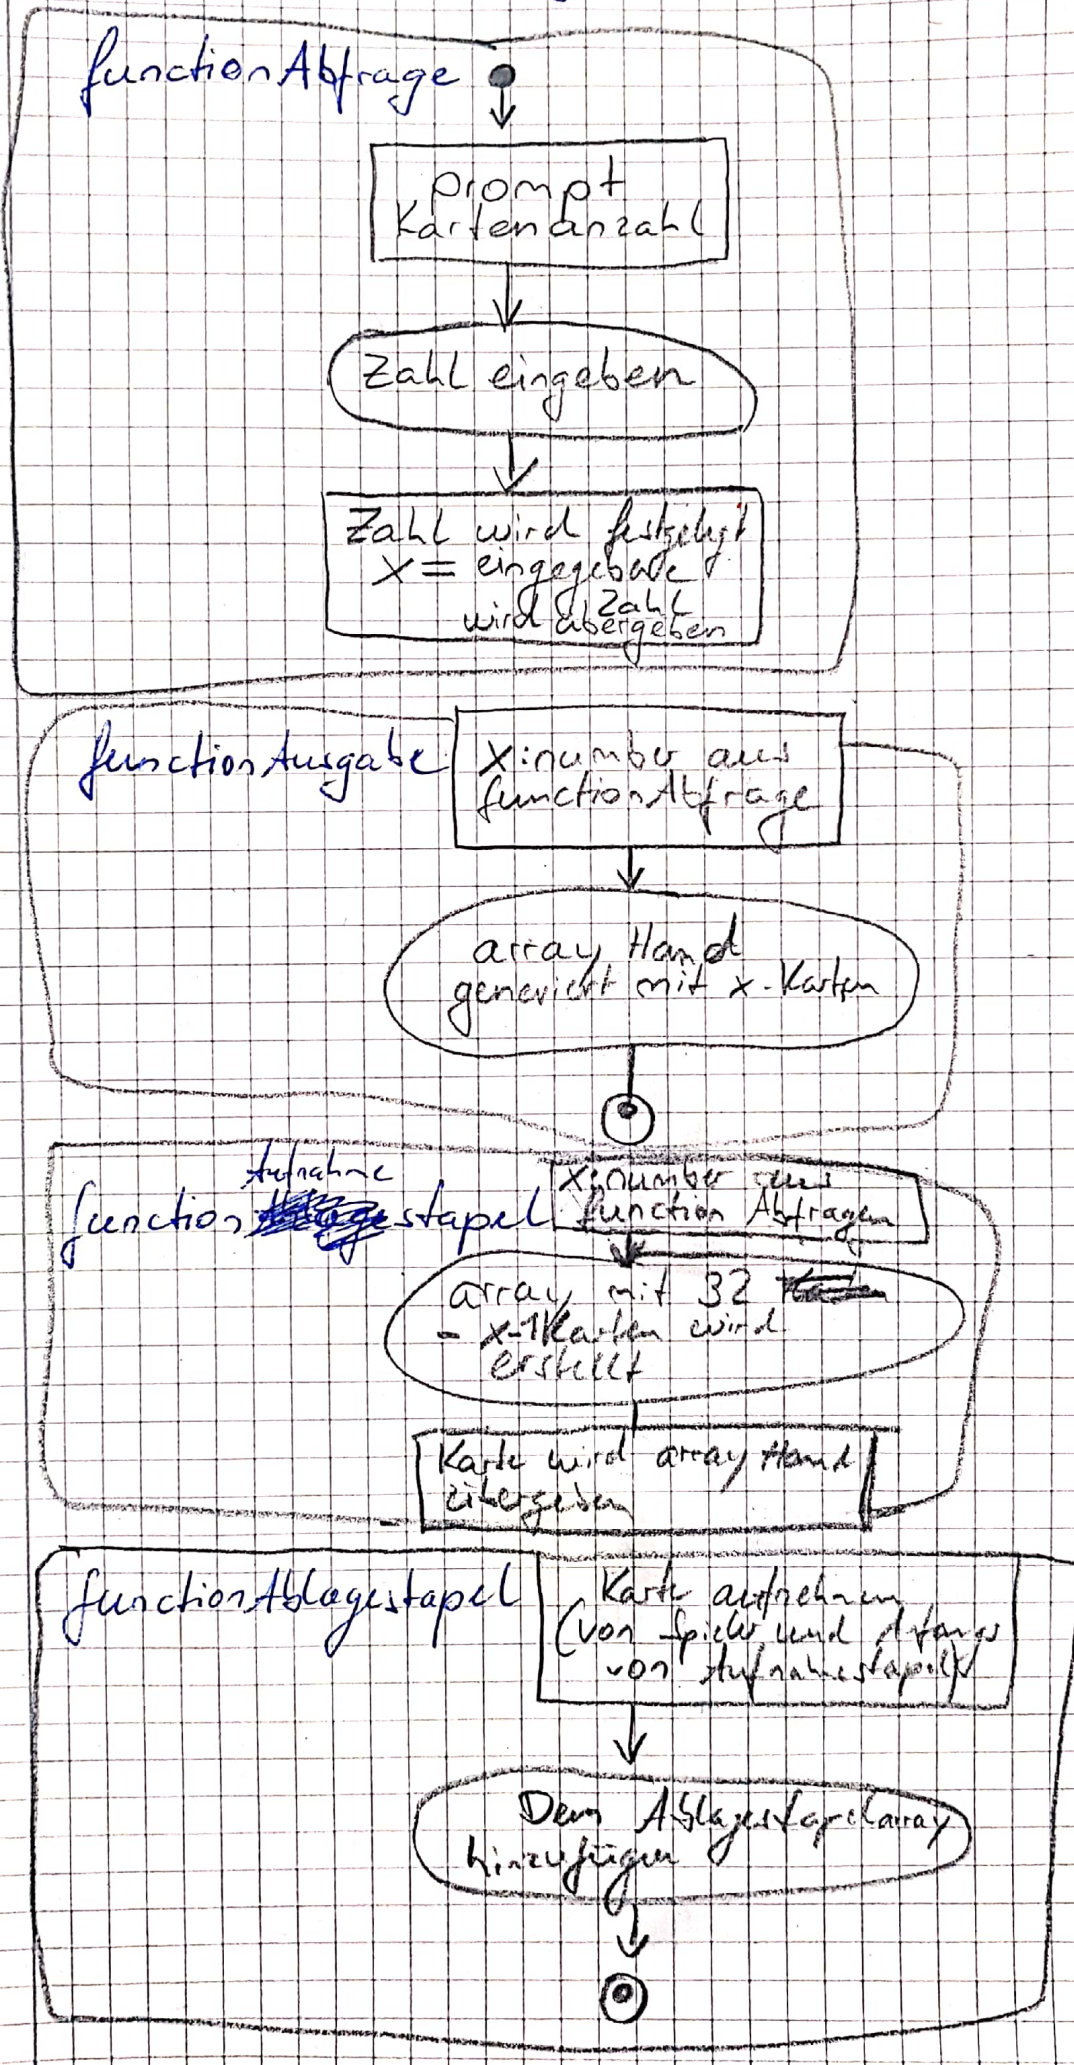 functionAbfrage
prompt
Kartenanzahl
Zahl eingeben
Zahl wird festgelegt
x = eingegebene
Zahl
wird übergeben
functionAusgabe
x:number aus
functionAbfrage
array Hand
generiert mit x-Karten
Aufnahme
function stapel
x:number aus
function Abfragen
array mit 32
- x-1Karten wird
erstellt
Karte wird array Hand
übergeben
functionAblagestapel
Karte aufnehmen
(von Spieler und Anfangs
von Aufnahmestapel)
Dem Ablagestapelarray
hinzufügen